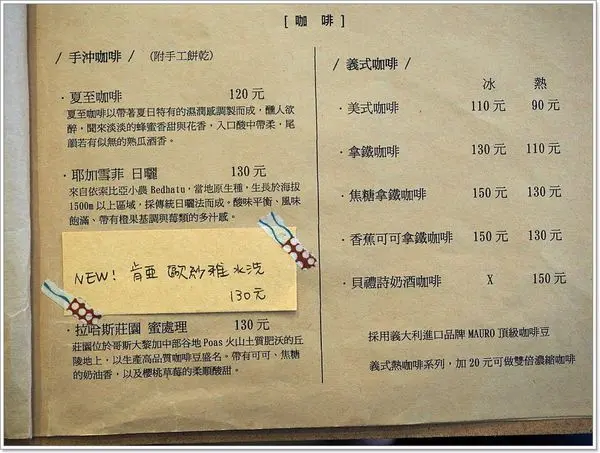 [ 咖 啡 ]
/ 手沖咖啡 / (附手工餅乾)
· 夏至咖啡 120 元
夏至咖啡以帶著夏日特有的濕潤感調製而成，醺人欲
醉，聞來淡淡的蜂蜜香甜與花香，入口酸中帶柔，尾
韻若有似無的熟瓜酒香。
· 耶加雪菲 日曬 130 元
來自依索比亞小農 Bedhatu，當地原生種，生長於海拔
1500m 以上區域，採傳統日曬法而成。酸味平衡、風味
飽滿、帶有橙果基調與莓類的多汁感。
NEW! 肯亞 歐紗雅 水洗
130元
· 拉哈斯莊園 蜜處理 130 元
莊園位於哥斯大黎加中部谷地 Poas 火山土質肥沃的丘
陵地上，以生產高品質咖啡豆盛名。帶有可可、焦糖
的奶油香，以及櫻桃草莓的柔順酸甜。
/ 義式咖啡 /
冰 熱
· 美式咖啡 110 元 90 元
· 拿鐵咖啡 130 元 110 元
· 焦糖拿鐵咖啡 150 元 130 元
· 香蕉可可拿鐵咖啡 150 元 130 元
· 貝禮詩奶酒咖啡 X 150 元
採用義大利進口品牌 MAURO 頂級咖啡豆
義式熱咖啡系列，加 20 元可做雙倍濃縮咖啡